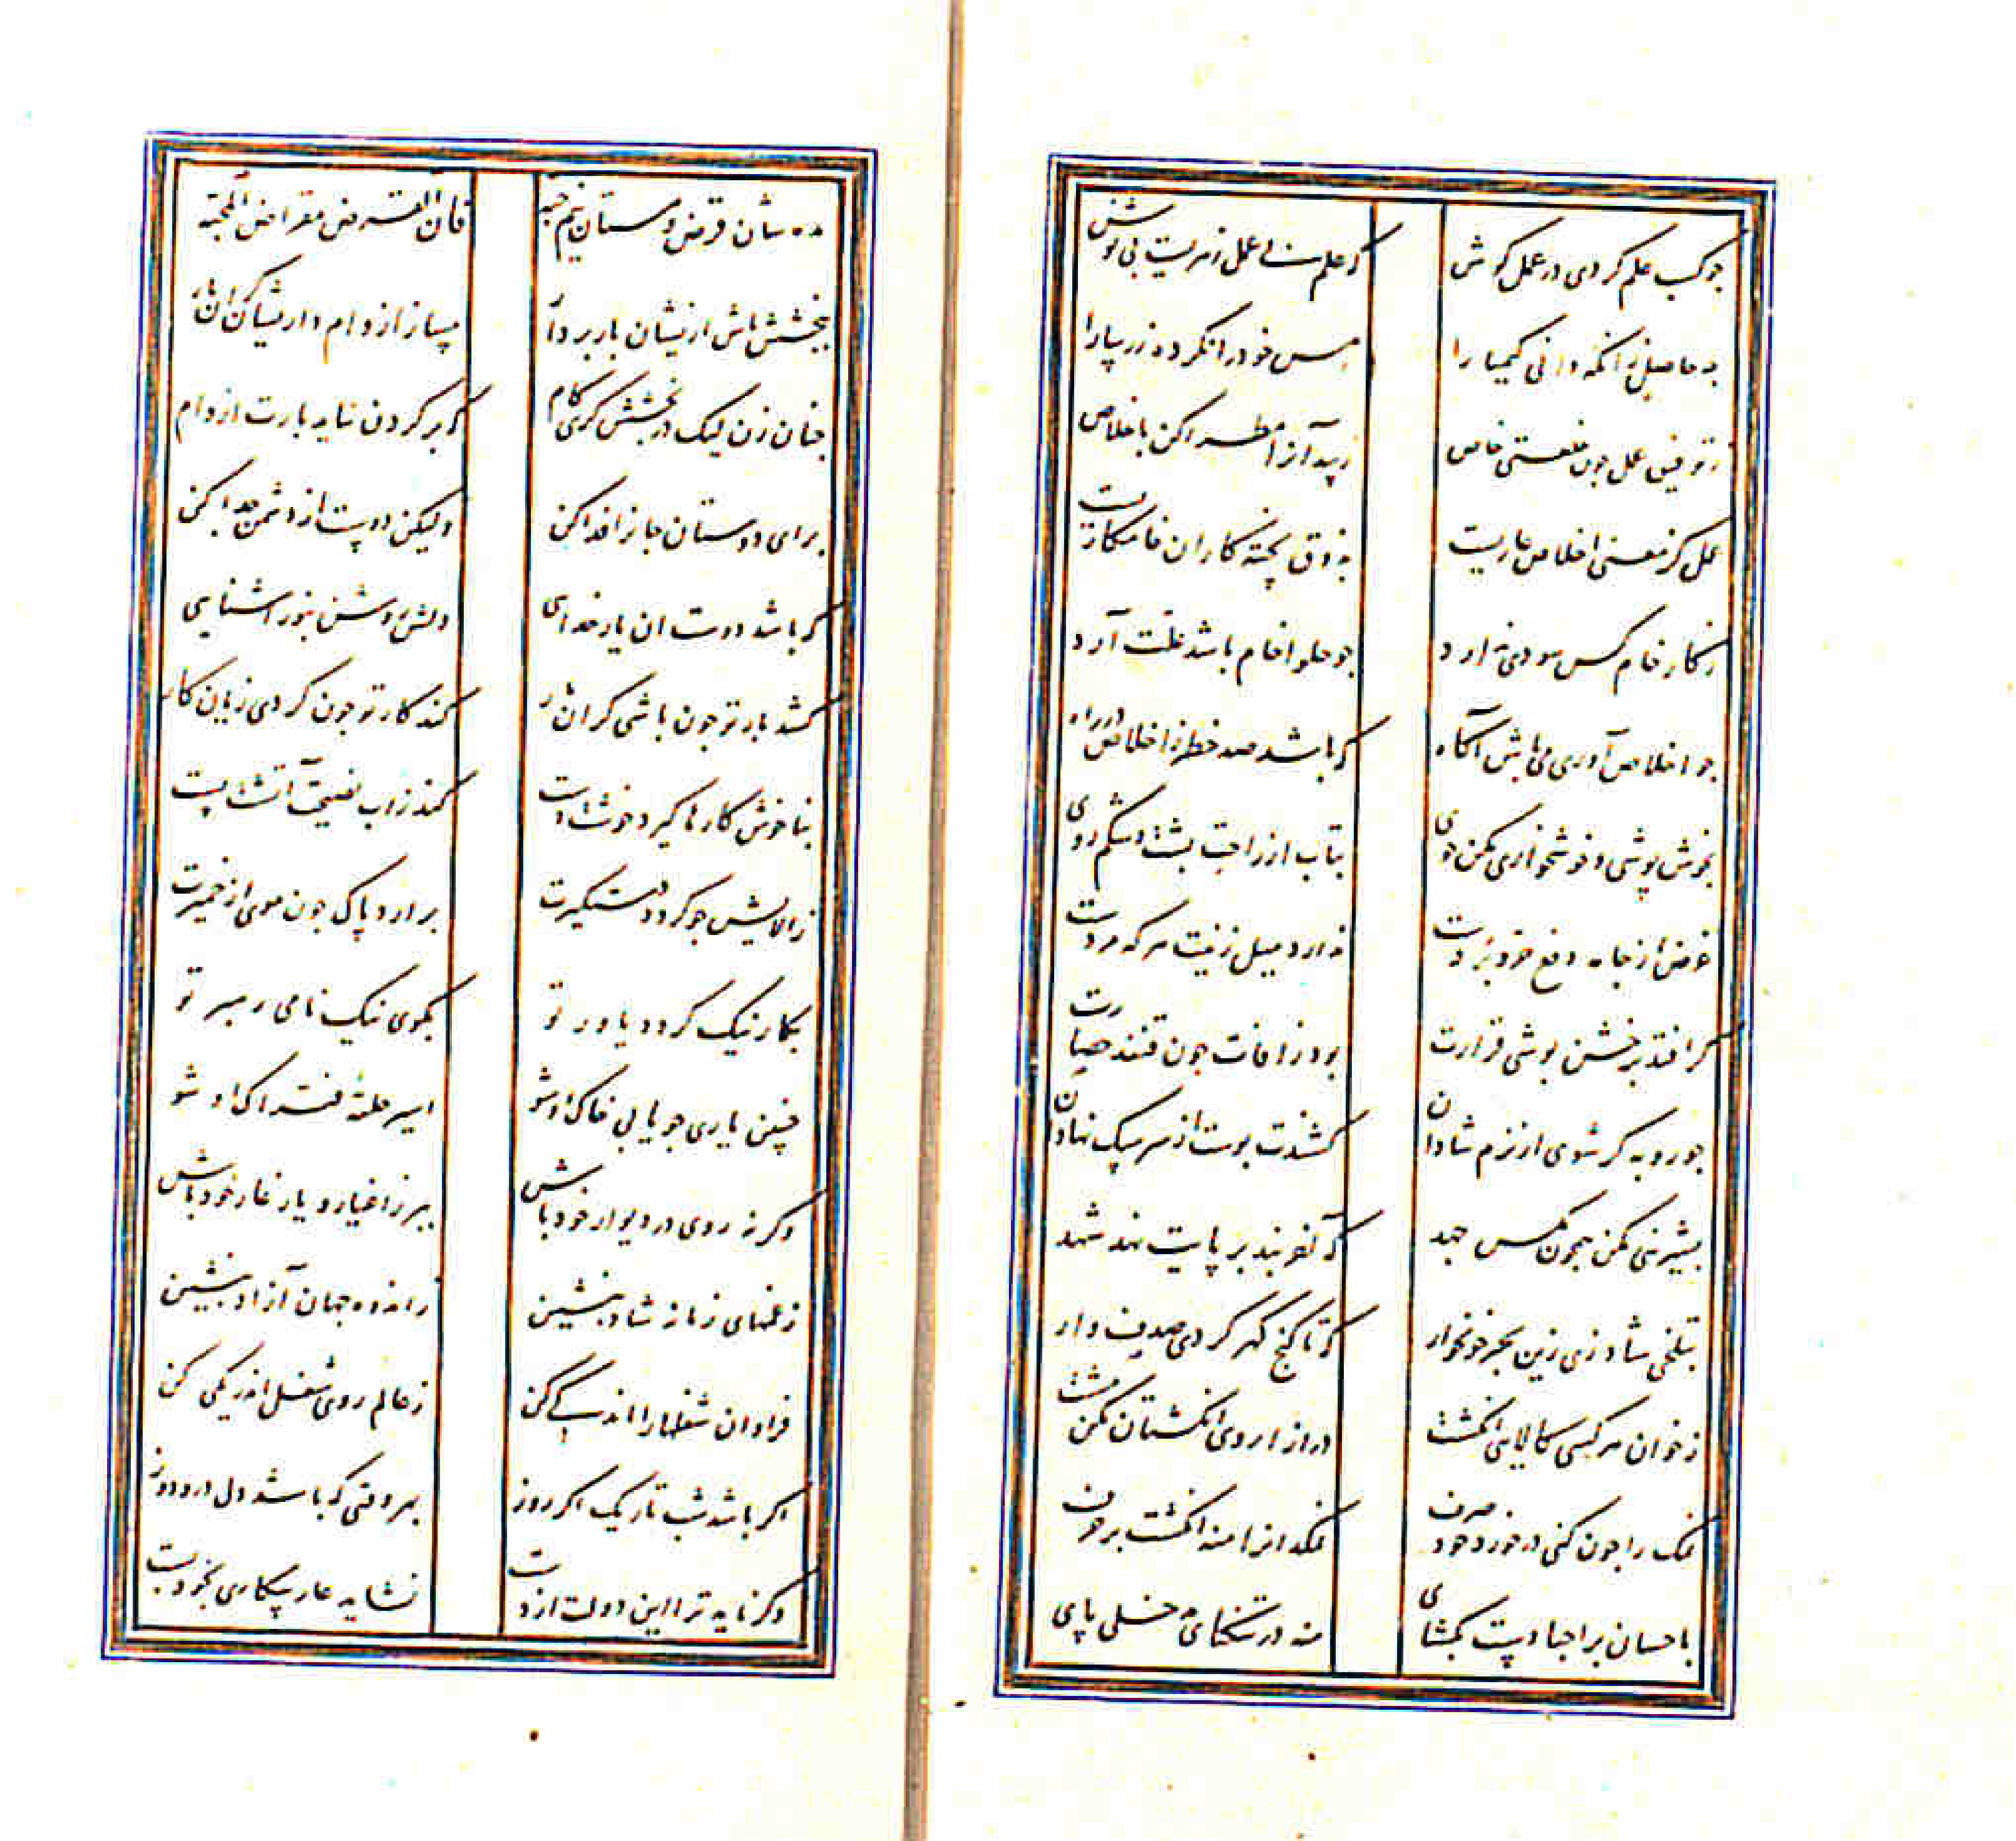 جو کسب علم کردی در عمل کوش
که علم بی عمل زهریست بی نوش
چه حاصل زانکه دانی کیمیا را
مس خود را نکرده زر سارا
ز توفیق عمل جون خلعتی خاص
رسد آنرا مطرا کن باخلاص
عمل کز معنی اخلاص عاریست
بذوق پخته کاران خامکاریست
ز کار خام کس سودی ندارد
جو حلوا خام باشد علت آرد
جو اخلاص آوری می باش آکاه
که باشد صد خطر ز اخلاص در راه
بخوش پوشی و خوشخواری مکن خوی
بتاب از راحت پشت و شکم روی
غرض از جامه دفع حر و بردست
ندارد میل زینت هرکه مردست
کر افتد بر خشن پوشی قرارت
بود ز افات جون قنفذ حصارت
جو روبه کر شوی از نرم شادان
کشندت پوست از سر سک نهادان
بشیرینی مکن همجون مکس جهد
که آخر بند بر پایت نهد شهد
بتلخی شاد زی زین بحر خونخوار
که تا کنج کهر کردی صدف وار
ز خوان هر کسی کالایی انکشت
دراز اروی انکشتان مکن مشت
نمک را جون کنی در خورد خود صرف
نمکدانرا منه انکشت بر حرف
باحسان بر احبا دست بکشای
منه در تنکنای مدخلی پای
مده شان قرض و مستان نیم حبه
فان القرض مقراض المحبه
ببخشش باش ازیشان بار بردار
مساز از وام دار یشان کران بار
جنان زن لیک در بخشش کری کام
که بر کردن نیاید بارت از وام
برای دوستان جانرا فدا کن
ولیکن دوست از دشمن جدا کن
که باشد دوست ان یار خدایی
دلش روشن بنور اشنایی
کشد بار تو جون باشی کران بار
کند کار تو جون کردی زیان کار
بناخوش کارها کیرد خوشت دست
کند ز اب نصیحت آتشت پست
ز الایش جو کردد دستکیرت
برارد پاک جون موی از خمیرت
بکار نیک کردد یاور تو
بکوی نیک نامی رهبر تو
چنین یاری جو یابی خاک او شو
اسیر حلقه فتراک او شو
وکرنه روی در دیوار خود باش
ببر ز اغیار و یار غار خود باش
ز غمهای زمانه شاد بنشین
ز اندوه جهان آزاد بنشین
فراوان شغلها را اندکی کن
ز عالم روی شغل اندر یکی کن
اکر باشد شب تاریک اکر روز
بهر وقتی که باشد دل درو دوز
وکر ناید ترا این دولت از دست
نشاید عار بیکاری بخود بست